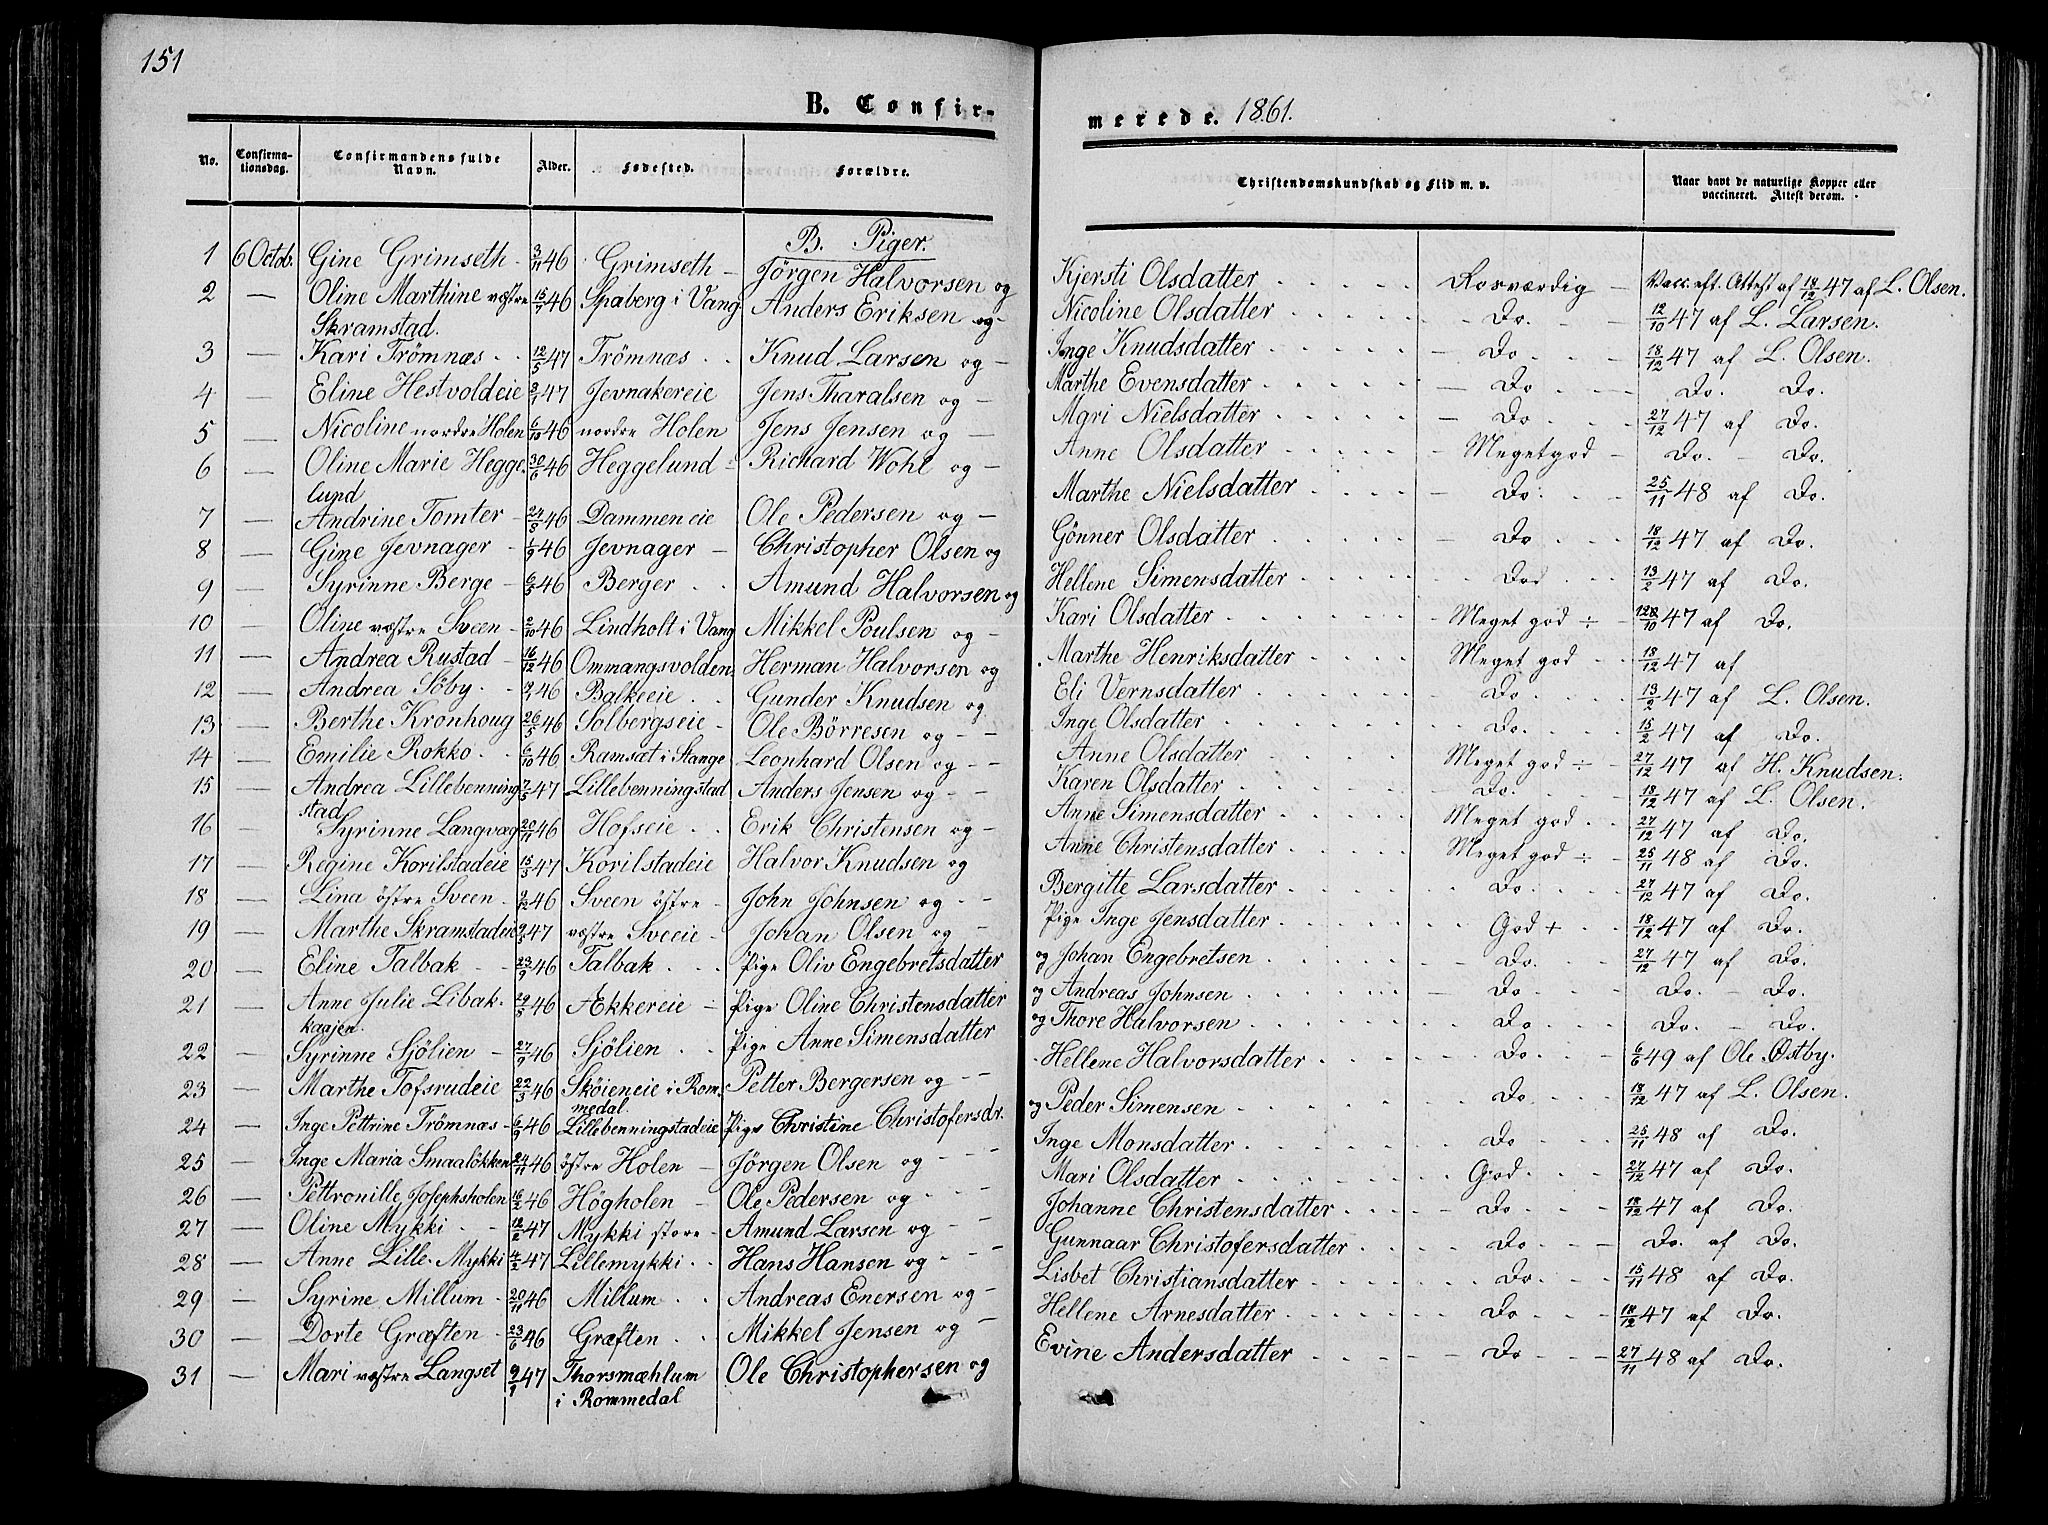 151
B. Confir-
merede. 1861.
No. Confirma-tionsdag. Confirmandens fulde Navn. Alder. Fødested. Forældre. Christendomskundskab og Flid m. v. Naar havt de naturlige Kopper eller vaccineret. Attest derom.
B. Piger.
1 6 Octob. Gine Grimseth - 3/11 46 Grimseth - Jørgen Halvorsen og Kjersti Olsdatter Rosværdig - Vacc. eft. Attest af 18/12 47 af L. Olsen.
2 — Oline Marthine væstre 15/7 46 Spaberg i Vang Anders Eriksen og - Nicoline Olsdatter Do. 12/10 47 af L. Larsen.
Skramstad.
3 — Kari Trömnæs 12/5 47 Trömnæs Knud Larsen og - Inge Knudsdatter Do 18/12 47 af L. Olsen.
4 — Eline Hestvoldeie 3/1 47 Jevnakereie Jens Tharalsen og - Marthe Evensdatter Do Do. Do.
5 — Nicoline nordre Holen 6/10 46 nordre Holen Jens Jensen og - Mari Nielsdatter Do 27/12 47 af Do.
6 — Oline Marie Hegge 30/6 46 Heggelund - Richard Wohl og - Anne Olsdatter Meget god - Do. - Do.
lund
7 — Andrine Tomter - 24/8 46 Dammeneie Ole Pedersen og - Marthe Nielsdatter Do. 25/11 48 af Do.
8 — Gine Jevnager - 1/9 46 Jevnager - Christopher Olsen og Gönner Olsdatter Do 18/12 47 af Do.
9 — Syrinne Berge - 6/5 46 Berger Amund Halvorsen og Hellene Simensdatter Do 13/2 47 af Do.
10 — Oline væstre Sveen - 2/10 46 Lindholt i Vang Mikkel Poulsen og - Kari Olsdatter Meget god ÷ /10 47 af Do.
11 — Andrea Rustad - 16/12 46 Ommangsvolden Herman Halvorsen og Marthe Henriksdatter Meget god 18/12 47 af
12 — Andrea Söby 46 Balkeeie Gunder Knudsen og Eli Vernsdatter Do 13/2 47 af L. Olsen.
13 — Berthe Kronhoug 26/5 46 Solbergseie - Ole Börresen og - Inge Olsdatter Do. 15/2 47 af Do.
14 — Emilie Rokko 6/10 46 Ramsæt i Stange Leonhard Olsen og - Anne Olsdatter Meget god ÷ 27/12 47 af H. Knudsen.
15 — Andrea Lillebenning 7/5 47 Lillebenningstad Anders Jensen og - Karen Olsdatter Do. 18/12 47 af L. Olsen.
stad
16 — Syrinne Langvæg 20/11 46 Hofseie Erik Christensen og - Anne Simensdatter Meget god 27/12 47 af Do.
17 — Regine Korilstadeie 15/3 47 Korilstadeie Halvor Knudsen og Anne Christensdatter Meget god ÷ 25/11 48 af Do.
18 — Lina östre Sveen 2/12 46 Sveen östre - John Johnsen og - Bergitte Larsdatter Do. 27/12 47 af Do.
19 — Marthe Skramstadeie 2/5 47 væstre Sveeie - Johan Olsen og - Pige Inge Jensdatter God + 18/12 47 af Do.
20 — Eline Talbak 23/9 46 Talbak Pige Oliv Engebretsdatter og Johan Engebretsen Do. 27/12 47 af Do.
21 — Anne Julie Libak 29/5 46 Ækkereie - Pige Oline Christensdatter og Andreas Johnsen Do Do. - Do.
kaajen.
22 — Syrinne Sjölien - 27/9 46 Sjölien Pige Anne Simensdatter og Thore Halvorsen Do Do. - Do.
23 — Marthe Tofsrudeie 22/3 46 Sköieneie i Rom- Petter Bergersen og - Hellene Halvorsdatter Do 6/6 49 af Ole Østby.
medal.
24 — Inge Pettrine Trömnæs - 6/9 46 Lillebenningstadeie Pige Christine Christofersdr. og Peder Simensen Do 18/12 47 af L. Olsen.
25 — Inge Maria Smaalökken 24/11 46 östre Holen - Jörgen Olsen og - Inge Monsdatter Do 25/11 48 af Do.
26 — Pettronille Josephsholen 16/2 46 Högholen - Ole Pedersen og - Mari Olsdatter God 27/12 47 af Do.
27 — Oline Mykki 12/2 47 Mykki store - Amund Larsen og - Johanne Christensdatter Do 18/12 47 af Do.
28 — Anne Lille-Mykki 4/2 47 Lillemykki Hans Hansen og - Gunnaar Christofersdatter Do Do. af Do.
29 — Syrine Millum 20/11 46 Millum Andreas Enersen og - Lisbet Christiansdatter Do 15/11 48 af Do.
30 — Dorte Græften - 23/6 46 Græften Mikkel Jensen og - Hellene Arnesdatter Do 18/12 47 af Do.
31 — Mari væstre Langset 9/1 47 Thorsmæhlum Ole Christophersen og Evine Andersdatter Do 27/11 48 af Do.
i Rommedal